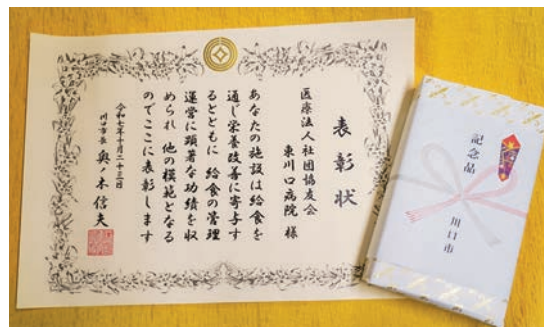 表彰状
医療法人社団協友会
東川口病院 様
あなたの施設は給食を
通じ栄養改善に寄与す
るとともに 給食の管理
運営に顕著な功績を収
められ 他の模範となる
のでここに表彰します
令和七年十月二十三日
川口市長 奥ノ木信夫
記念品
川口市